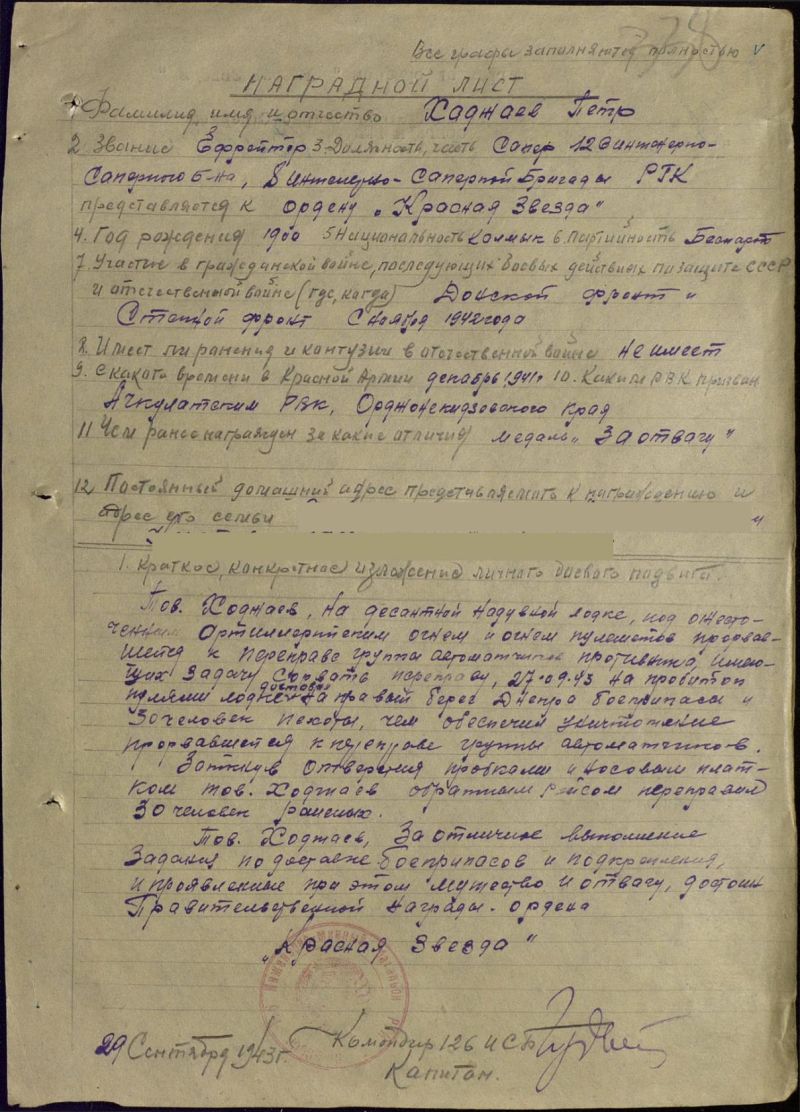 Все графы заполняются полностью V
НАГРАДНОЙ ЛИСТ
Фамилия, имя и отчество Хаджаев Петр
2. Звание Ефрейтор 3. Должность, часть Сапер 126 инженерно-
Саперного б-на, 8 инженерно-Саперной Бригады РГК
представляется к ордену „Красная Звезда"
4. Год рождения 1900 5 Национальность Калмык 6. Партийность Беспарт
7. Участие в гражданской войне, последующих боевых действиях по защите СССР
и отечественной войне (где, когда) Донской фронт и
Степной фронт с ноября 1942 года
8. Имеет ли ранения и контузии в отечественной войне не имеет
9. С какого времени в Красной Армии декабрь 1941г 10. Каким РВК призван
Ачкулатским РВК, Орджоникидзовского края
11 Чем ранее награжден за какие отличия медаль „За отвагу"
12. Постоянный домашний адрес представляемого к награждению и
адрес его семьи
1. Краткое, конкретное изложение личного боевого подвига.
Тов. Ходжаев, на десантной надувной лодке, под ожесто-
ченным артиллерийским огнем и огнем пулеметов прорвав-
шейся к переправе группы автоматчиков противника, имею-
щих задачу сорвать переправу, 27.09.43 на пробитой
пулями лодке доставил на правый берег Днепра боеприпасы и
30 человек пехоты, чем обеспечил уничтожение
прорвавшейся к переправе группы автоматчиков.
Заткнув отверстия пробками и носовым плат-
ком тов. Ходжаев обратным рейсом переправил
30 человек раненых.
Тов. Ходжаев, за отличное выполнение
задания по доставке боеприпасов и подкрепления,
и проявленные при этом мужество и отвагу, достоин
Правительственной награды - ордена
„Красная Звезда"
29 Сентября 1943г. Командир 126 ИСБ
Капитан.